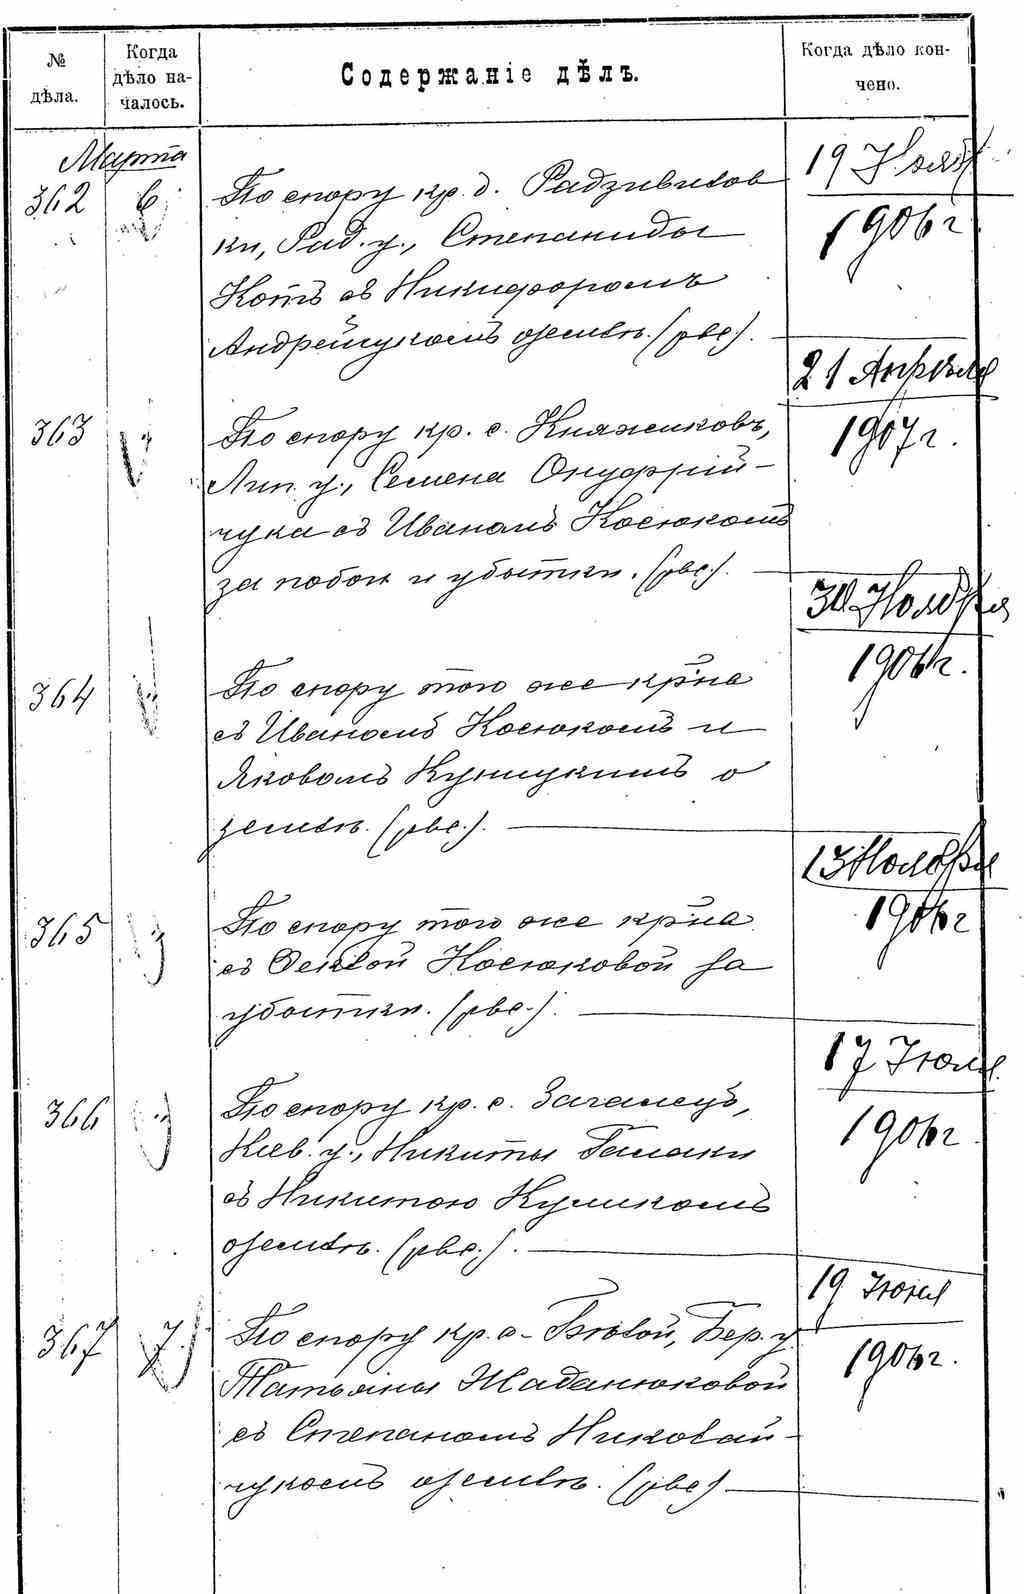 № дѣла.
Когда дѣло на-
чалось.
Содержаніе дѣлъ.
Когда дѣло кон-
чено.
Марта
362
6
По спору кр. д. Радзивилов
ки, Рад. у., Степаниды
Котъ съ Никифоромъ
Андрейчукомъ о землѣ. (рве.).
19 Нояб
1906 г
363
По спору кр. с. Княжиковъ,
Лип. у., Семена Онуфрій-
чука съ Иваномъ Косюкомъ
за побои и убытки. (рве.).
21 Апрѣля
1907 г.
364
По спору того же кр-на
съ Иваномъ Косюкомъ и
Яковомъ о
землѣ. (рве.).
30 Ноября
1906 г.
365
По спору того же кр-на
съ Феклой Косюковой за
убытки. (рве.).
13 Ноября
1906 г
366
По спору кр. с.
Кіев. у., Никиты
съ Никитою Куликомъ
о землѣ. (рве.).
17 Іюля
1906 г.
367
7
По спору кр. с. Бѣлой, Бер. у
Татьяны Маданюковой
съ Степаномъ Николай-
чукомъ о землѣ. (рве)
19 Іюня
1906 г.